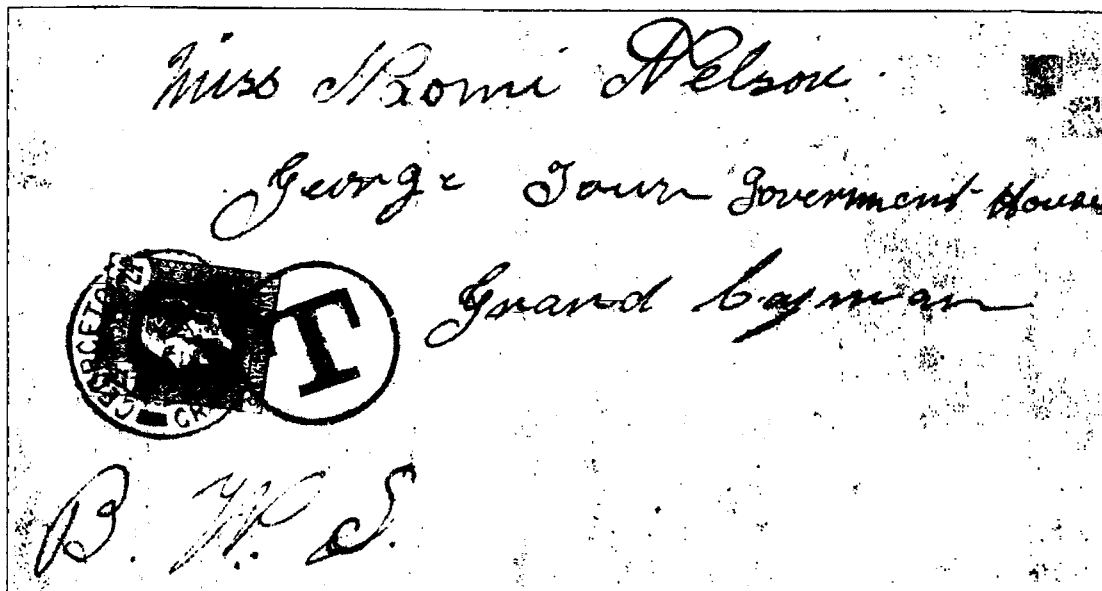 Miss Naomi Nelson.
George Town Government House
Grand Cayman
T
GEORGETOWN
B. W. I.